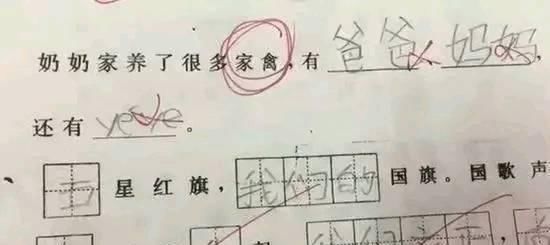 奶奶家养了很多家禽，有爸爸、妈妈，
还有yeye。
五星红旗，我们的国旗。国歌声